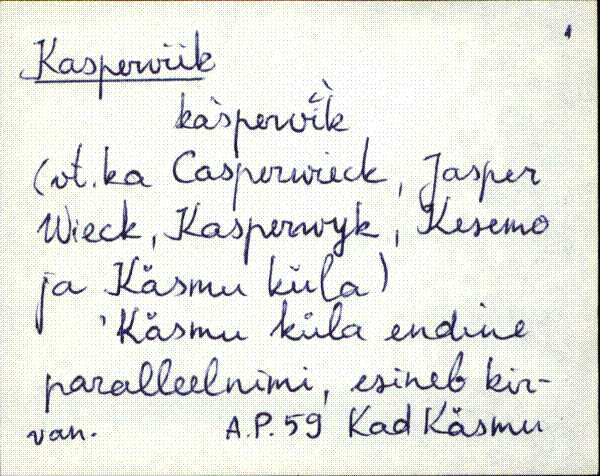 1
Kasperwiik
kàspervī̬̀k
(vt. ka Casperwieck, Jasper
Wieck, Kasperwyk, Kesemo
ja Käsmu küla)
'Käsmu küla endine
paralleelnimi, esineb kir-
van. A.P. 59 Kad Käsmu